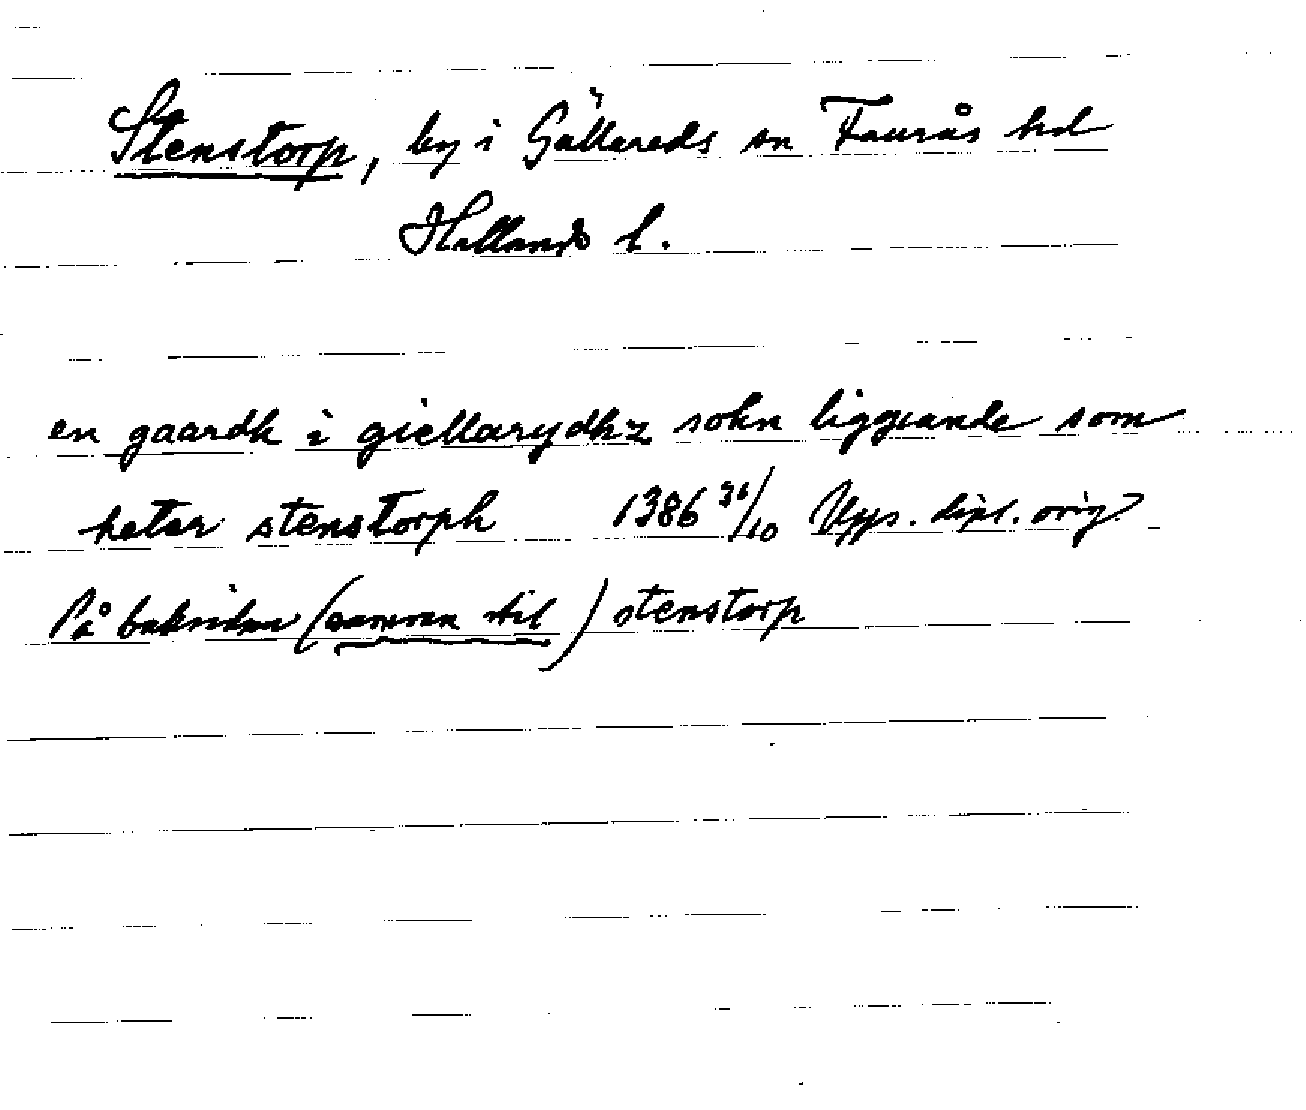 Stenstorp, by i Gällareds sn Faurås hd
Hallands l.
en gaardh i giellarydhz sokn liggiande som
heter stenstorph 1386 31/10 Upps. dipl. orig.
På baksidan (samman stil) stenstorp